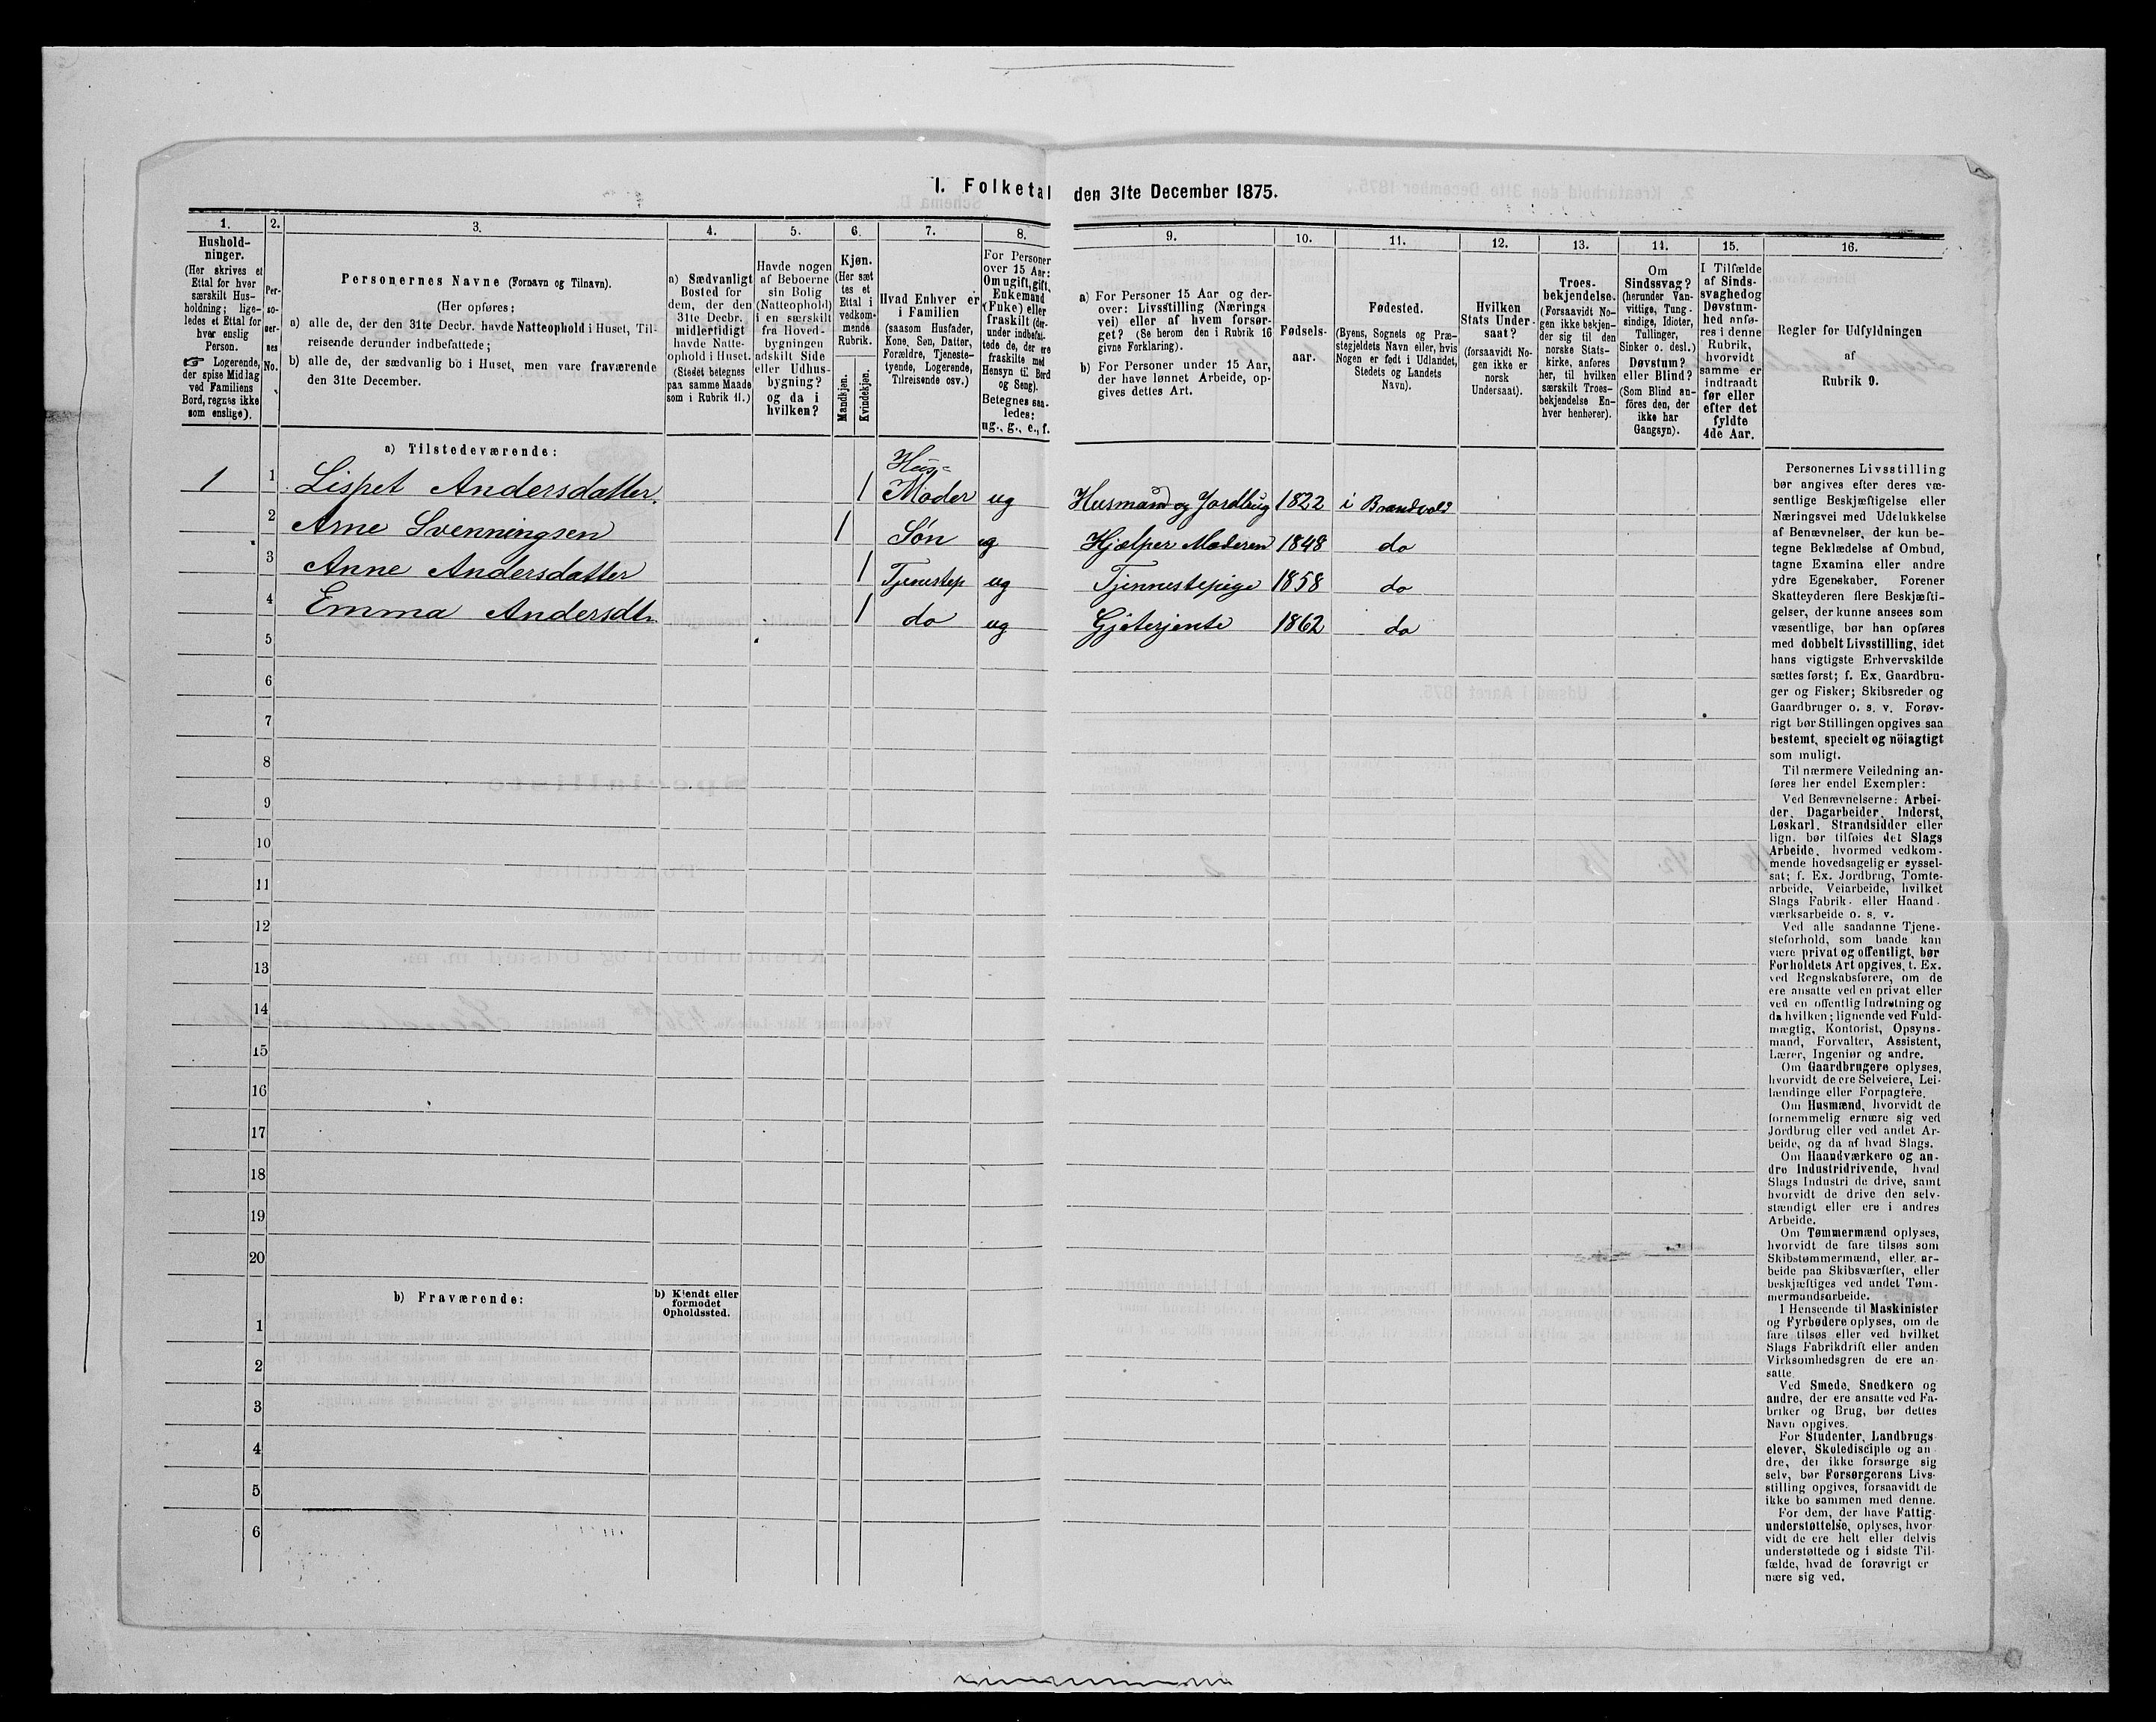 I. Folketal den 31te December 1875.
1. 2. 3. 4. 5. 6. 7. 8. 9. 10. 11. 12. 13. 14. 15. 16.
Hushold-
ninger.
(Her skrives et
Ettal for hver
særskilt Hus-
holdning; lige-
ledes et Ettal for
hver enslig
Person.
☞ Logerende,
der spise Middag
ved Familiens
Bord, regnes ikke
som enslige).
Per-
so-
ner-
nes
No.
Personernes Navne (Fornavn og Tilnavn).
(Her opføres:
a) alle de, der den 31te Decbr. havde Natteophold i Huset, Til-
reisende derunder indbefattede;
b) alle de, der sædvanlig bo i Huset, men vare fraværende
den 31te December.
a) Sædvanligt
Bosted for
dem, der den
31te Decbr.
midlertidigt
havde Natte-
ophold i Huset.
(Stedet betegnes
paa samme Maade
som i Rubrik 11.)
Havde nogen
af Beboerne
sin Bolig
(Natteophold)
i en særskilt
fra Hoved-
bygningen
adskilt Side
eller Udhus-
bygning?
og da i
hvilken?
Kjøn.
(Her sæt
tes et
Ettal i
vedkom-
mende
Rubrik.
Mandkjøn.
Kvindekjøn.
Hvad Enhver er
i Familien
(saasom Husfader,
Kone, Søn, Datter,
Forældre, Tjeneste-
tyende, Logerende,
Tilreisende osv.)
For Personer
over 15 Aar:
Om ugift, gift,
Enkemand
(Enke) eller
fraskilt (der-
under indbefat-
tede de, der ere
fraskilte med
Hensyn til Bord
og Seng).
Betegnes saa-
ledes:
ug., g., e., f.
a) For Personer 15 Aar og der-
over: Livsstilling (Nærings
vei) eller af hvem forsør-
get? (Se herom den i Rubrik 16
givne Forklaring).
b) For Personer under 15 Aar,
der have lønnet Arbeide, op-
gives dettes Art.
Fødsels-
aar.
Fødested.
(Byens, Sognets og Præ-
stegjeldets Navn eller, hvis
Nogen er født i Udlandet,
Stedets og Landets
Navn).
Hvilken
Stats Under-
saat?
(forsaavidt No-
gen ikke er
norsk
Undersaat).
Troes-
bekjendelse.
(Forsaavidt No-
gen ikke bekjen-
der sig til den
norske Stats-
kirke, anføres
her, til hvilken
særskilt Troes-
bekjendelse En-
hver henhører).
Om
Sindssvag?
(herunder Van-
vittige, Tung-
sindige, Idioter,
Tullinger,
Sinker o. desl.)
Døvstum?
eller Blind?
(Som Blind an-
föres den, der
ikke har
Gangsyn).
I Tilfælde
af Sinds-
svaghed og
Døvstum-
hed anfø-
res i denne
Rubrik,
hvorvidt
samme er
indtraadt
før eller
efter det
fyldte
4de Aar.
Regler for Udfyldningen
af
Rubrik 9.
a) Tilstedeværende:
1 1 Lispet Andersdatter 1 Hus= Moder ug Husmand og Jordbrug 1822 i Brandvold
2 Arne Svenningsen 1 Søn ug Hjælper Moderen 1848 do
3 Anne Andersdatter 1 Tjenestep ug Tjennestepige 1858 do
4 Emma Andersdtr. 1 do ug Gjeterjente 1862 do
5
6
7
8
9
10
11
12
13
14
15
16
17
18
19
20
b) Fraværende:
b) Kjendt eller
formodet
Opholdssted.
1
2
3
4
5
6
Personernes Livsstilling
bør angives efter deres væ-
sentlige Beskjæftigelse eller
Næringsvei med Udelukkelse
af Benævnelser, der kun be-
tegne Beklædelse af Ombud,
tagne Examina eller andre
ydre Egenskaber. Forener
Skatteyderen flere Beskjæfti-
gelser, der kunne ansees som
væsentlige, bør han opføres
med dobbelt Livsstilling, idet
hans vigtigste Erhvervskilde
sættes først; f. Ex. Gaardbru-
ger og Fisker; Skibsreder og
Gaardbruger o. s. v. Forøv-
rigt bør Stillingen opgives saa
bestemt, specielt og nöiagtigt
som muligt.
Til nærmere Veiledning an-
føres her endel Exempler:
Ved Benævnelserne: Arbei-
der, Dagarbeider, Inderst,
Løskarl, Strandsidder eller
lign. bør tilføies det Slags
Arbeide, hvormed vedkom-
mende hovedsagelig er syssel-
sat; f. Ex. Jordbrug, Tomte-
arbeide, Veiarbeide, hvilket
Slags Fabrik- eller Haand-
værksarbeide o. s. v.
Ved alle saadanne Tjene-
steforhold, som baade kan
være privat og offentligt, bør
Forholdets Art opgives, f. Ex.
ved Regnskabsførere, om de
ere ansatte ved en privat eller
ved en offentlig Indretning og
da hvilken; lignende ved Fuld-
mægtig, Kontorist, Opsyns-
mand, Forvalter, Assistent,
Lærer, Ingeniør og andre.
Om Gaardbrugere oplyses,
hvorvidt de ere Selveiere, Lei-
lændinge eller Forpagtere.
Om Husmænd, hvorvidt de
fornemmelig ernære sig ved
Jordbrug eller ved andet Ar-
beide, og da af hvad Slags.
Om Haandværkere og an-
dre Industridrivende, hvad
Slags Industri de drive, samt
hvorvidt de drive den selv-
stændigt eller ere i andres
Arbeide.
Om Tømmermænd oplyses,
hvorvidt de fare tilsøs som
Skibstømmermænd, eller ar-
beide paa Skibsværfter, eller
beskjæftiges ved andet Tøm-
mermandsarbeide.
I Henseende til Maskinister
og Fyrbødere oplyses, om de
fare tilsøs eller ved hvilket
Slags Fabrikdrift eller anden
Virksomhedsgren de ere an-
satte.
Ved Smede, Snedkere og
andre, der ere ansatte ved Fa-
briker og Brug, bør dettes
Navn opgives.
For Studenter, Landbrugs-
elever, Skoledisciple og an-
dre, der ikke forsørge sig
selv, bør Forsørgerens Livs-
stilling opgives, forsaavidt de
ikke bo sammen med denne.
For dem, der have Fattig-
understøttelse, oplyses, hvor-
vidt de ere helt eller delvis
understøttede og i sidste Til-
fælde, hvad de forøvrigt er-
nære sig ved.